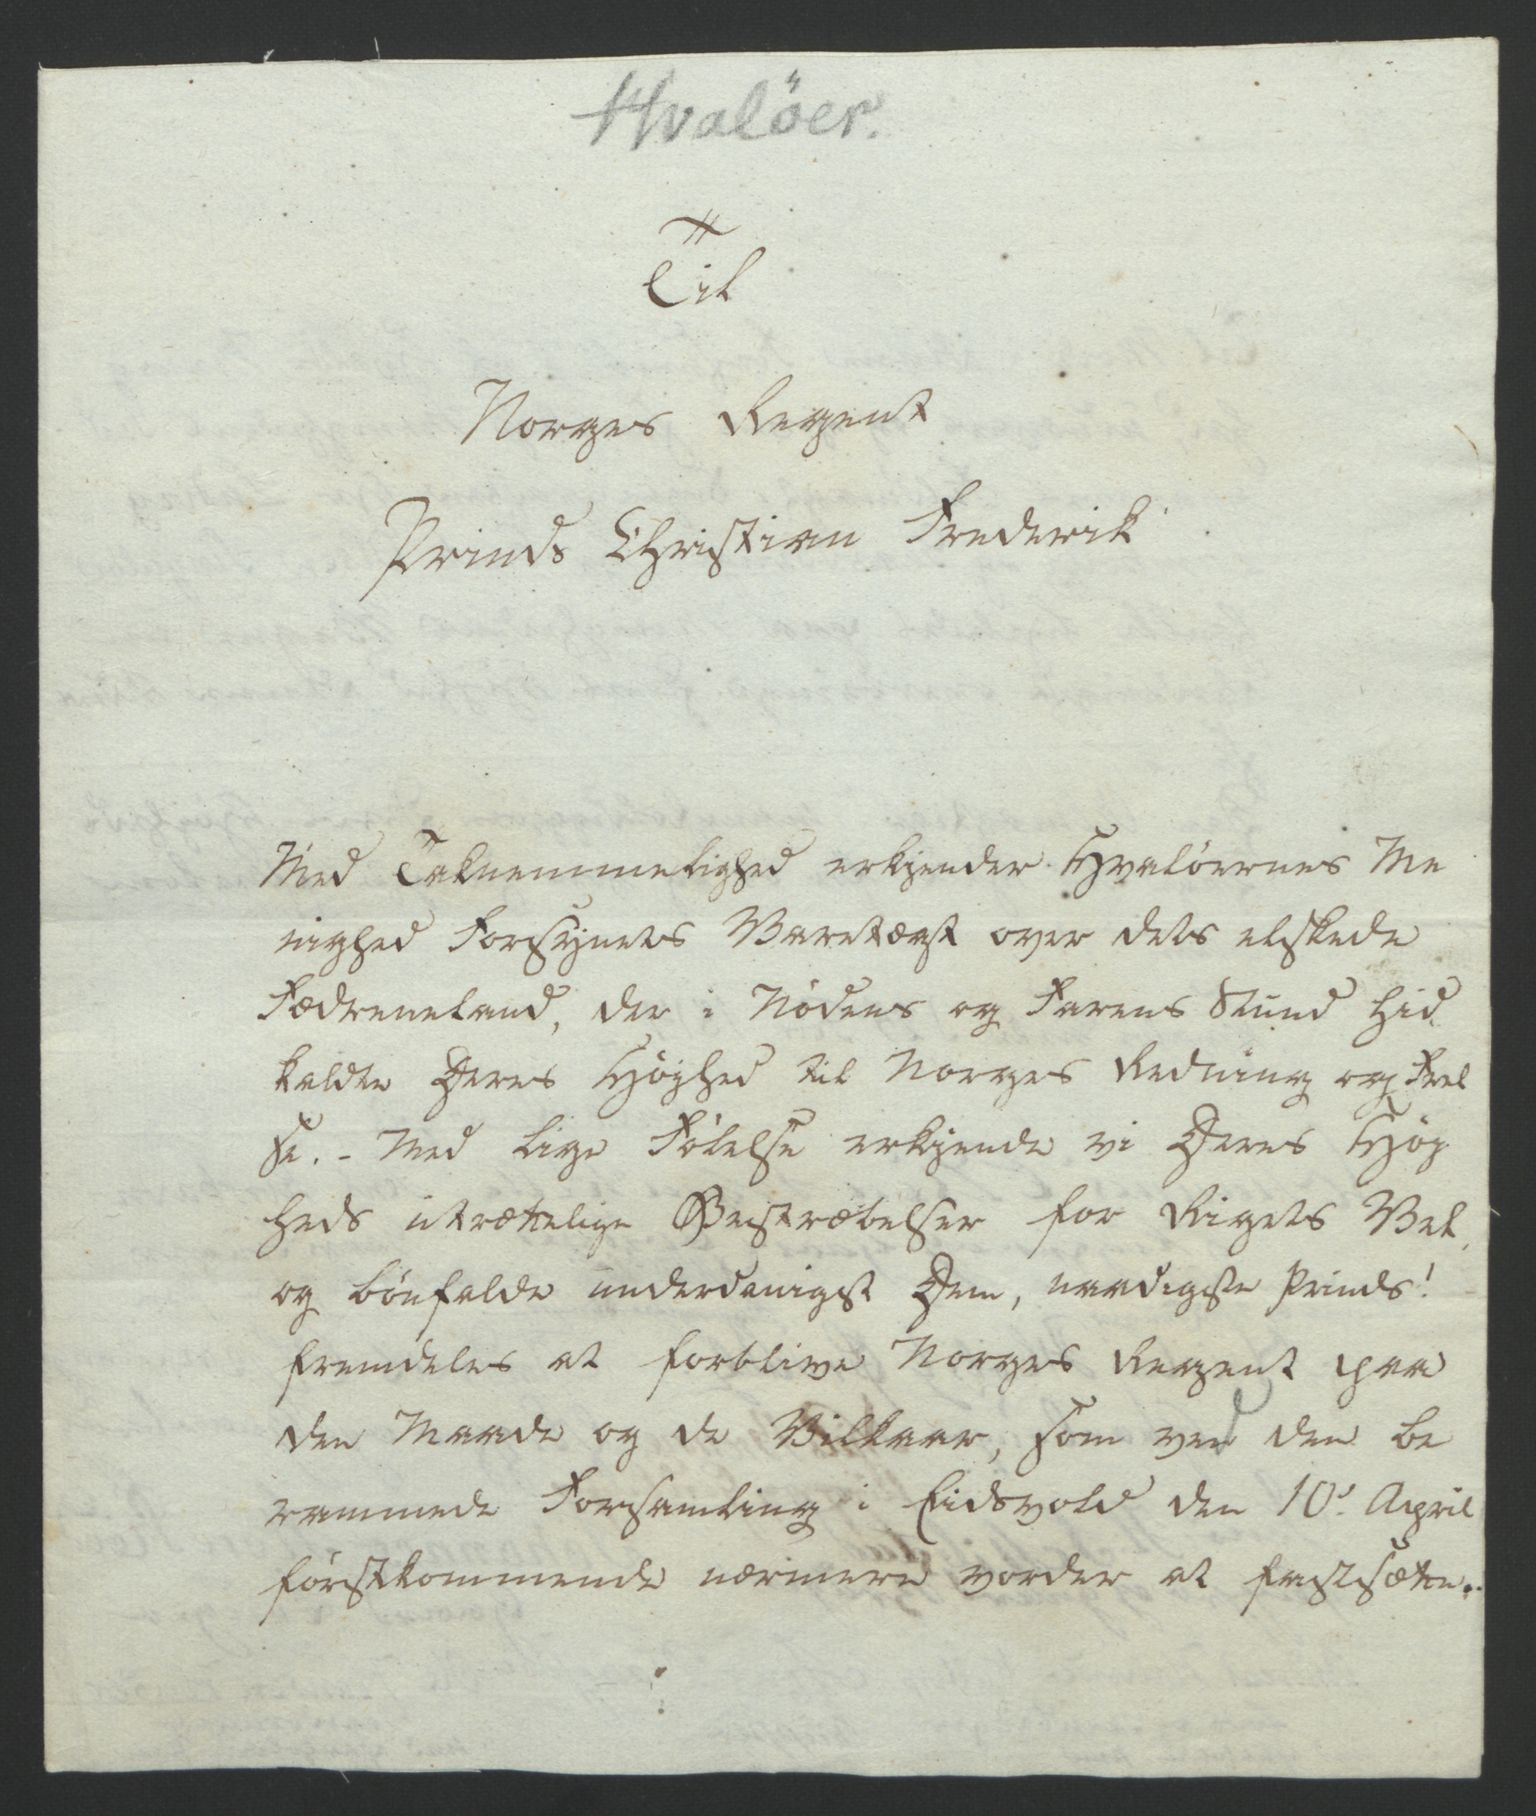 Hvalöer.
Til
Norges Regent
Prinds Christian Frederik
Med Taknemmelighed erkjender Hvalöernes Me
nighed Forsynets Varetægt over dets elskede
Fædreneland, der i Nödens og Farens Stund hid
kaldte Deres Höyhed til Norges Redning og Frel
se. - Med lige Fölelse erkjende vi Deres Höy
heds utrættelige Bestræbelser for Rigets Vel,
og bönfalde underdanigst Dem, naadigste Prinds!
fremdeles at forblive Norges Regent paa
den Maade og de Vilkaar, som ved den be
rammede Forsamling i Eidsvold den 10de April
förstkommende nærmere vorder at fastsætte.